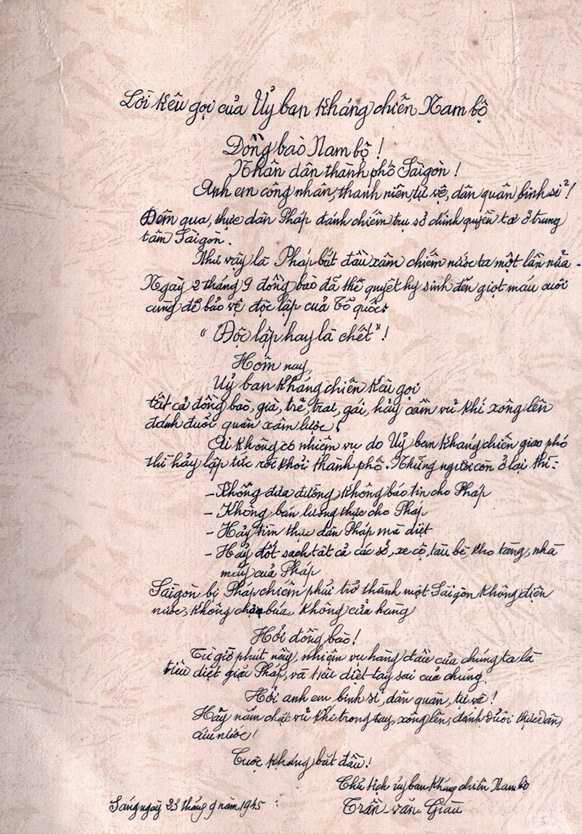 Lời kêu gọi của Uỷ ban kháng chiến Nam bộ
Đồng bào Nam bộ !
Nhân dân thành phố Sàigòn !
Anh em công nhân, thanh niên, tự vệ, dân quân, binh sĩ !
Đêm qua, thực dân Pháp đánh chiếm trụ sở chính quyền ta ở trung
tâm Sàigòn.
Như vậy là Pháp bắt đầu xâm chiếm nước ta một lần nữa.
Ngày 2 tháng 9 đồng bào đã thề quyết hy sinh đến giọt máu cuối
cùng để bảo vệ độc lập của Tổ quốc:
" Độc lập hay là chết" !
Hôm nay,
Uỷ ban kháng chiến kêu gọi
tất cả đồng bào, già, trẻ, trai, gái, hãy cầm vũ khí xông lên
đánh đuổi quân xâm lược !
Ai không có nhiệm vụ do Uỷ ban kháng chiến giao phó
thì hãy lập tức rời khỏi thành phố. Những người còn ở lại thì:
- Không đưa đường, không báo tin cho Pháp
- Không bán lương thực cho Pháp
- Hãy tìm thực dân Pháp mà diệt
- Hãy đốt sạch tất cả các sở, xe cộ, tàu bè, kho tàng, nhà
máy của Pháp
Sàigòn bị Pháp chiếm phải trở thành một Sàigòn không điện
nước, không chợ búa không cửa hàng
Hỡi đồng bào!
Từ giờ phút này, nhiệm vụ hàng đầu của chúng ta là
tiêu diệt giặc Pháp, và tiêu diệt tay sai của chúng.
Hỡi anh em binh sĩ, dân quân, tự vệ !
Hãy nắm chặt vũ khí trong tay, xông lên, đánh đuổi thực dân,
cứu nước !
Cuộc kháng bắt đầu !
Chủ tịch uỷ ban kháng chiến Nam bộ
Sáng ngày 23 tháng 9 năm 1945
Trần văn Giàu